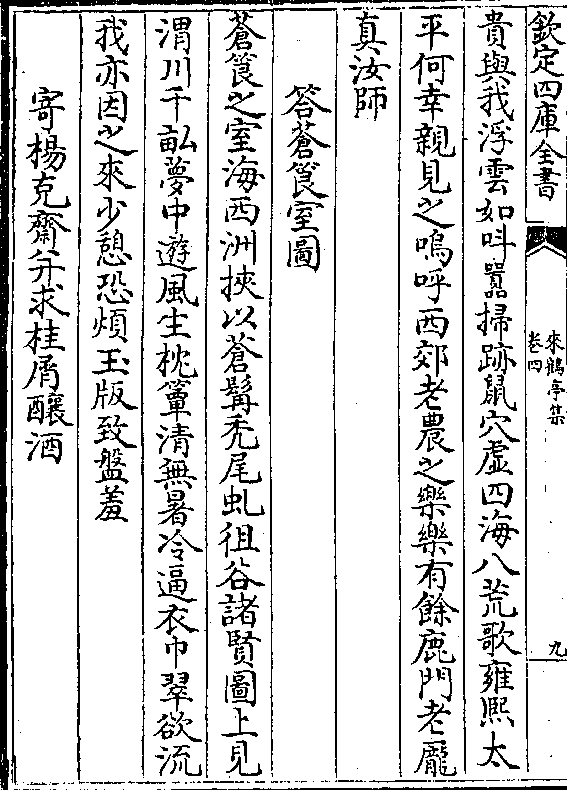 欽定四庫全書
來鶴亭集
卷四
九
貴與我浮雲如吁嚣掃跡鼠穴虛四海八荒歌雍熙太
平何幸親見之嗚呼西郊老農之樂樂有餘鹿門老龐
真汝師
答蒼筤室圖
蒼筤之室海西洲挾以蒼髯禿尾虬徂谷諸賢圖上見
渭川千畝夢中遊風生枕簟清無暑冷逼衣巾翠欲流
我亦因之來少憩恐煩玉版致盤羞
寄楊克齋并求桂屑釀酒